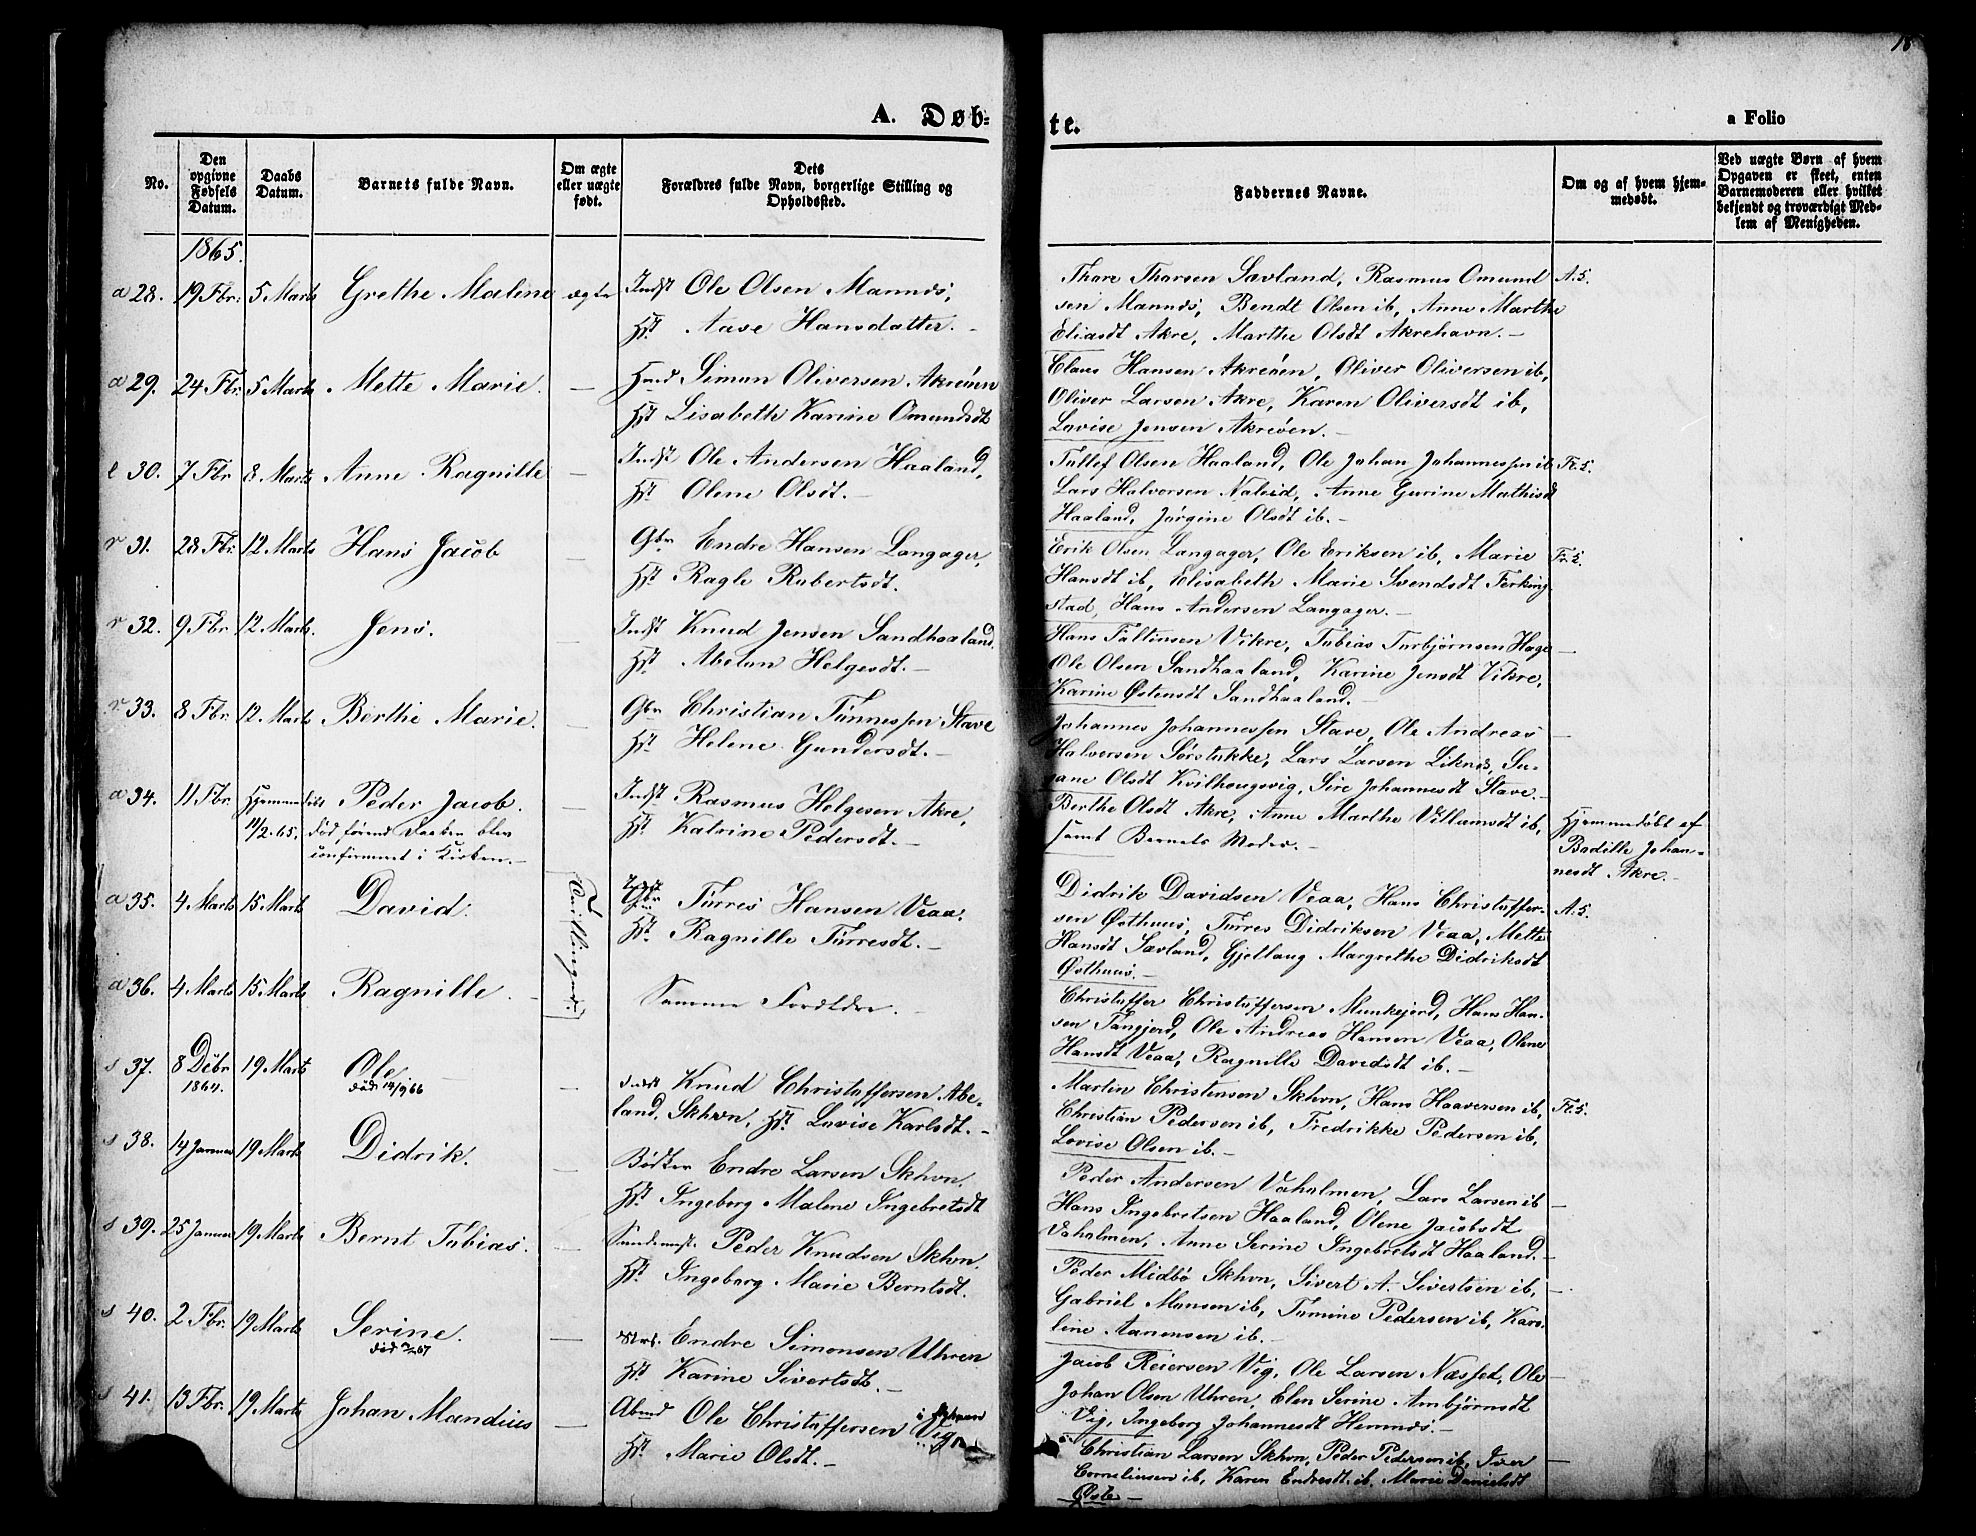 18
A. Døb-
te.
a Folio
No.
Den opgivne Fødsels Datum.
Daabs Datum.
Barnets fulde Navn.
Om ægte eller uægte født.
Dets Forældres fulde Navn, borgerlige Stilling og Opholdssted.
Faddernes Navne.
Om og af hvem hjemmedøbt.
Ved uægte Børn af hvem Opgaven er skeet, enten Barnemoderen eller hvilket bekjendt og troværdigt Medlem af Menigheden.
1865.
a 28. 19 Fbr. 5 Marts Grethe Malene ægte Indst Ole Olsen Mannes,
Hst. Aase Hansdatter. –
Thore Thorsen Sævland, Rasmus Omund
sen Mannes, Bendt Olsen ib, Anne Marthe
Eliasdt Akre, Marthe Olsdt Akrehavn. –
A. 5.
a 29. 24 Fbr. 5 Marts Mette Marie. – Hmd Simon Oliversen Akreøen
Hst Lisabeth Karine Omundsdt
Claus Hansen Akreøen, Oliver Oliversen ib,
Oliver Larsen Akre, Karen Oliversdt ib,
Lovise Jensen Akreøen. –
l 30. 7 Fbr 8 Marts Anne Ragnille – Indst Ole Andersen Haaland,
Hst Olene Olsdt. –
Tollef Olsen Haaland, Ole Johan Johannessen ib
Lars Halvorsen Naleid, Anne Gurine Mathisdt
Haaland, Jørgine Olsdt ib. –
Fr. 5.
r 31. 28 Fbr. 12 Marts Hans Jacob – Gbr Endre Hansen Langager,
Hst. Ragle Robertsdt.
Erik Olsen Langager, Ole Eriksen ib, Marie
Hansdt ib, Elisabeth Marie Svendsdt Ferking
stad, Hans Andersen Langager. –
Fr. 5.
r 32. 9 Fbr. 12 Marts. Jens. Indst Knud Jensen Sandhaaland,
Hst. Abelon Helgesdt. –
Hans Faltinsen Vikre, Tobias Torbjørnsen Hage
Ole Olsen Sandhaaland, Karine Jensdt Vikre,
Karine Østensdt Sandhaaland. –
r 33. 8 Fbr. 12. Marts Berthe Marie. – Gbr Christian Tønnessen Stave
Hst. Helene Gundersdt. –
Johannes Johannessen Stave, Ole Andreas
Halvorsen Sørstokke, Lars Larsen Liknes, Su-
sane Olsdt Kvilhougsvig, Sire Johannesdt Stave. –
a 34. 11 Fbr. Hjemmedøbt Peder Jacob. – Indst Rasmus Helgesen Akre,
11/2. 65. død, førend Daaben blev Hst. Katrine Pedersdt. –
confirmeret i Kirken. –
Berthe Olsdt Akre, Anne Marthe Villumsdt ib,
samt Barnets Moder. –
Hjemmedøbt af
Bodille Johan-
nesdt Akre. –
a 35. 4 Marts 15 Marts David. Tvillinger. Gbr Tørres Hansen Veaa.
Hst. Ragnille Tørresdt. –
Didrik Davidsen Veaa, Hans Christoffer-
sen Østhuus, Tørres Didriksen Veaa, Mette
Hansdt Sævland, Gjellaug Margrethe Didriksdt
Østhuus. –
A. 5.
a 36. 4 Marts 15 Marts Ragnille. – Samme Forældre. –
Christoffer Christoffersen Munkejord, Hans Han-
sen Tangjerd, Ole Andreas Hansen Veaa, Olene
Hansdt Veaa, Ragnille Davidsdt ib. –
s 37. 8 Debr 19 Marts Ole. – Indst Knud Christoffersen Abe-
1864. død 14/9 66 land, Skhvn, Hst. Lovise Karlsdt. –
Martin Christensen Skhvn, Hans Haaversen ib,
Christian Pedersen ib, Fredrikke Pedersen ib,
Lovise Olsen ib. –
Fr. 5.
s 38. 14 Januar 19 Marts Didrik. – Bødker Endre Larsen Skhvn.
Hst. Ingeborg Malene Ingebretsdt
Peder Andersen Vaholmen, Lars Larsen ib –
Hans Ingebretsen Haaland, Olene Jacobsdt
Vaholmen, Anne Serine Ingebretsdt Haaland. –
s 39. 25 Januar 19 Marts Bernt Tobias. – Peder Knudsen Skhvn.
Hst. Ingeborg Marie Berntsdt.
Peder Midbø Skhvn, Sivert A. Sivertsen ib, –
Gabriel Monsen ib, Tomine Pedersen ib, Karo-
line Aanensen ib. –
s 40. 2 Fbr. 19 Marts Serine. – Endre Simonsen Uhren
død Hst. Karine Sivertsdt. –
Jacob Reiersen Vig, Ole Larsen Næsset, Ole –
Johan Olsen Uhren, Elen Serine Arnbjørnsdt
Vig, Ingeborg Johannesdt Hemnes. –
s 41. 13 Fbr. 19 Marts Johan Mandius – Abmd Ole Christoffersen Vig
Hst. Marie Olsdt. –
Christian Larsen Skhvn, Peder Pedersen ib, Iver –
Corneliusen ib, Karen Endresdt ib, Marie Danielsdt